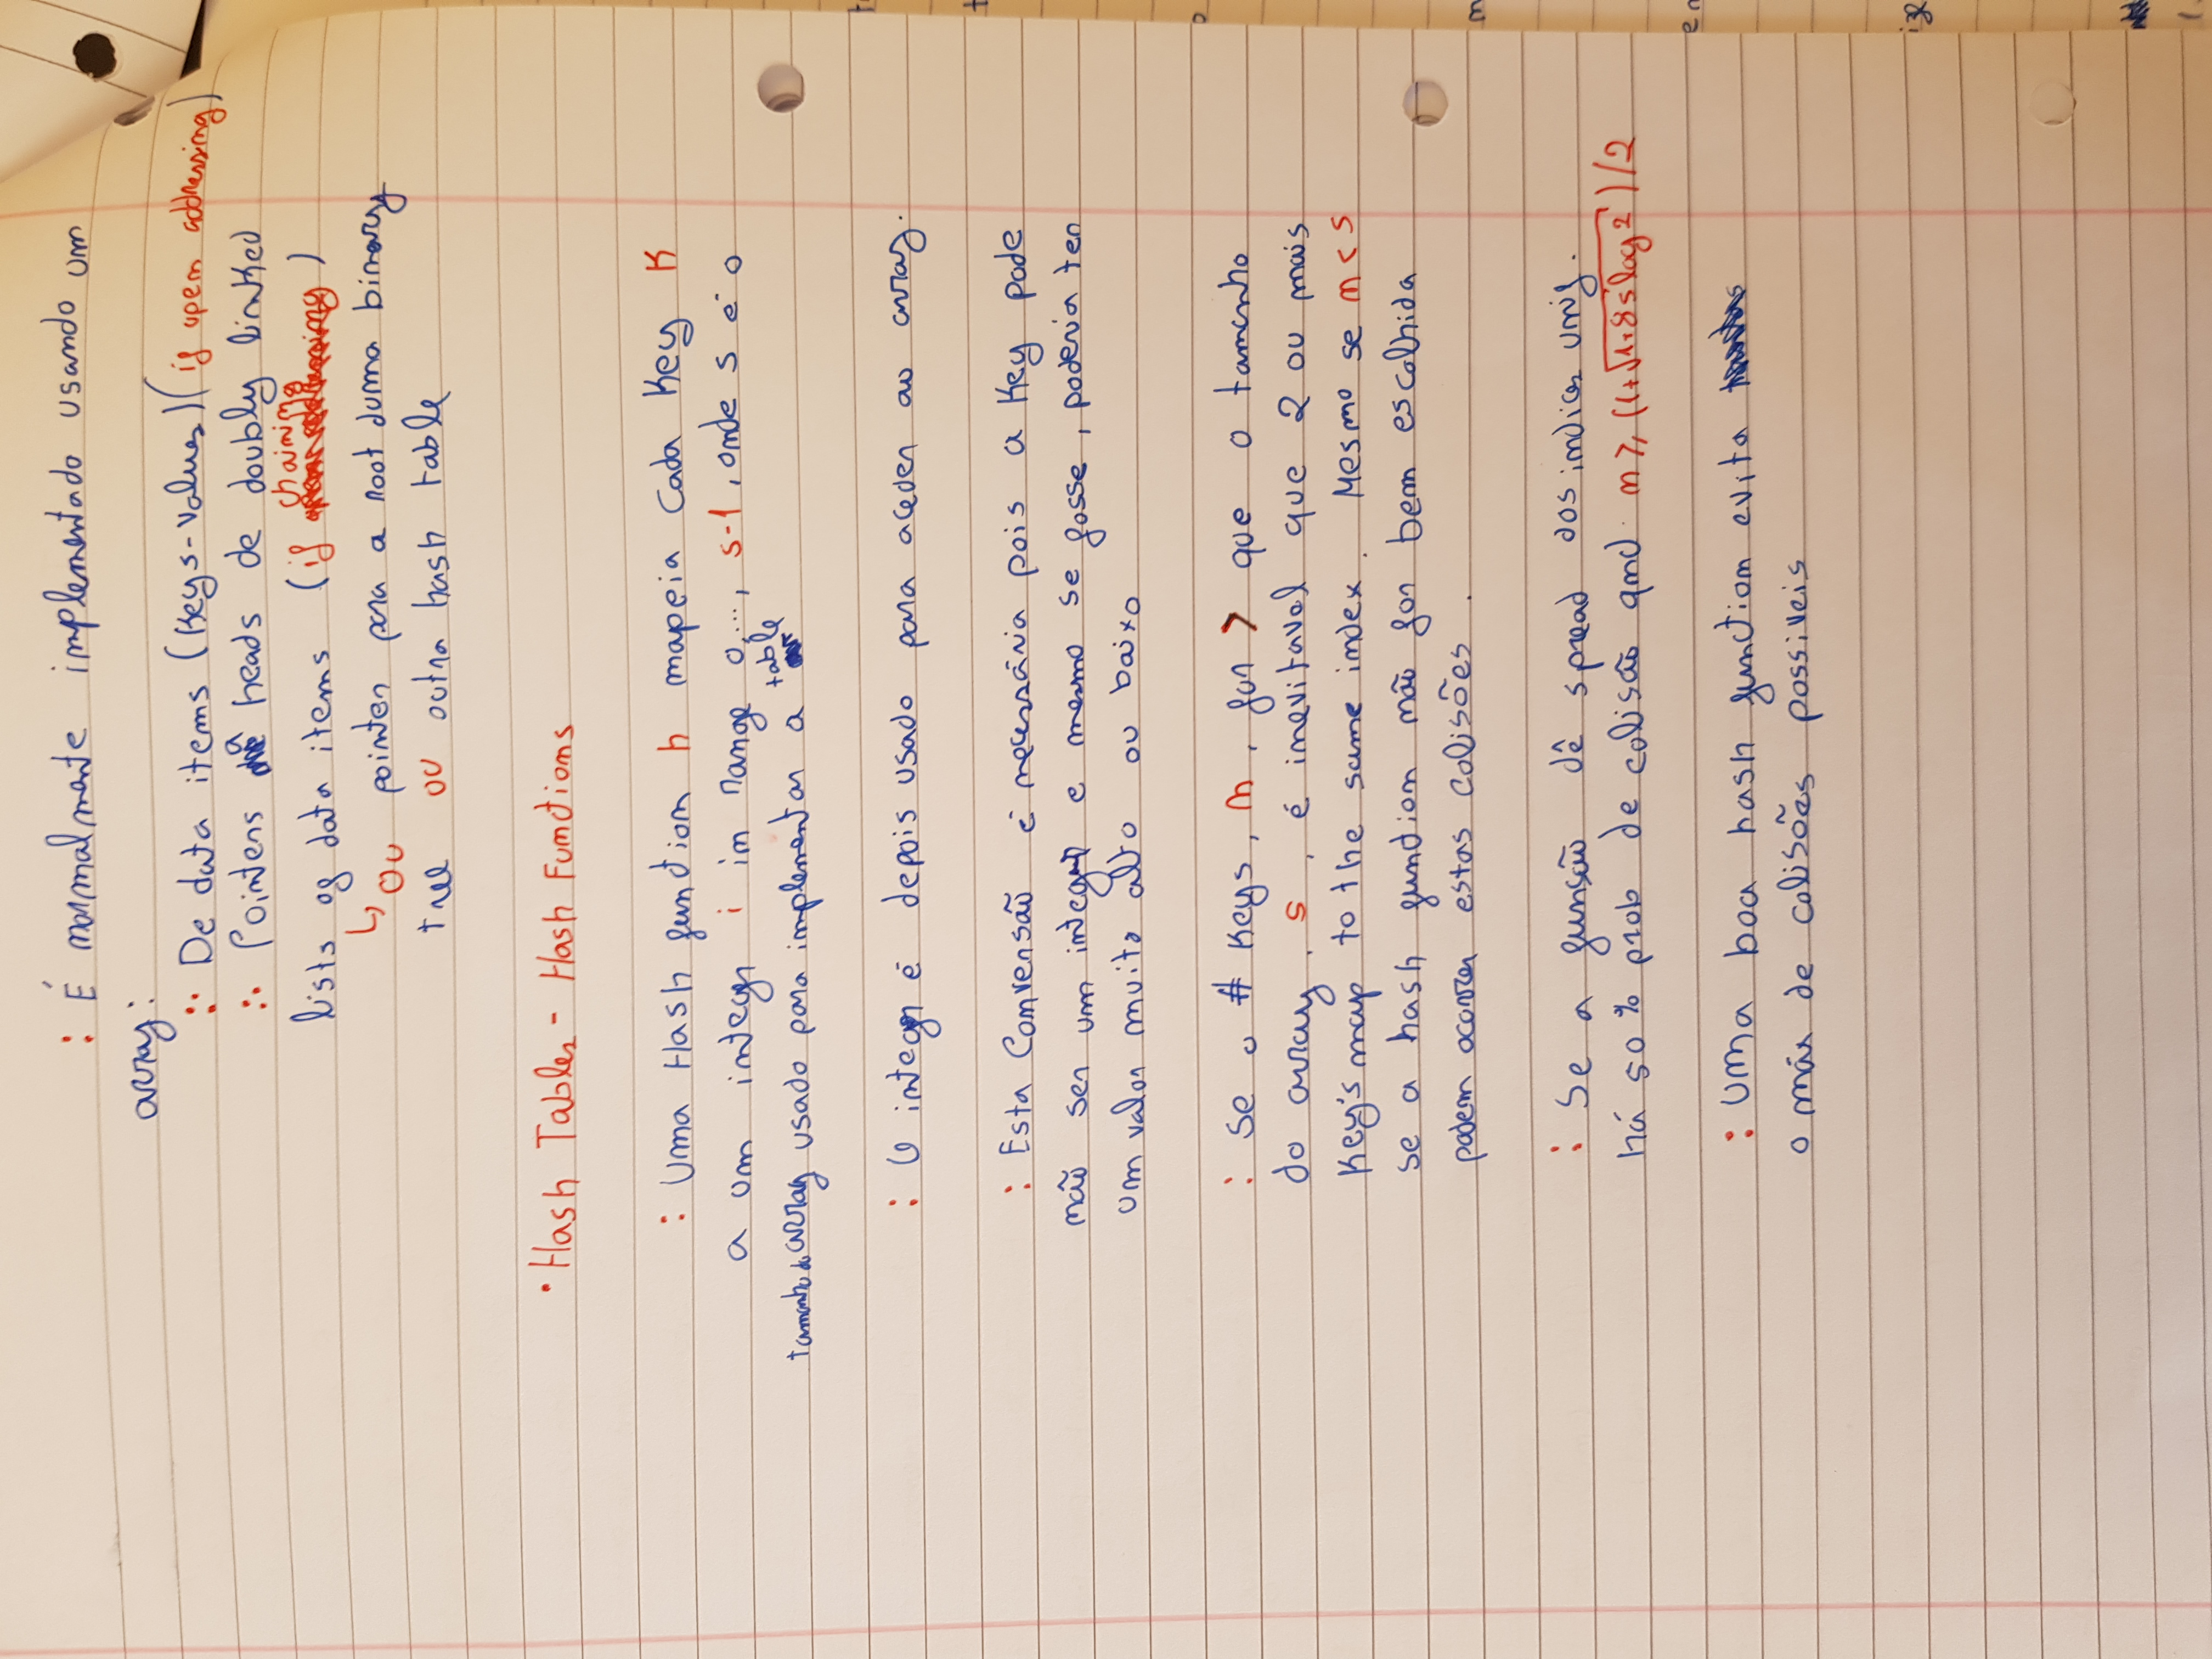 : É normalmente implementado usando um
array:
:· De data items (Keys-Values) (if open addressing)
:· Pointers a heads de doubly linked
lists of data items (if chaining)
↳ ou pointer para a root duma binary
tree ou outra hash table
• Hash Tables - Hash Functions
: Uma Hash function h mapeia cada Key K
a um integer i in range 0,..., s-1, onde s é o
tamanho do array usado para implementar a table
: O integer é depois usado para aceder ao array.
: Esta Conversão é necessária pois a Key pode
não ser um integer e mesmo se fosse, poderia ter
um valor muito alto ou baixo
: Se o # Keys, n, for > que o tamanho
do array, s, é inevitavel que 2 ou mais
Key's map to the same index. Mesmo se n < s
se a hash function não for bem escolhida
podem ocorrer estas colisões.
: Se a funsão dê spread dos indices unif.
há 50% prob de colisão qnd n ≥ (1+√1+8s log 2)/2
: Uma boa hash function evita
o máx de colisões possiveis